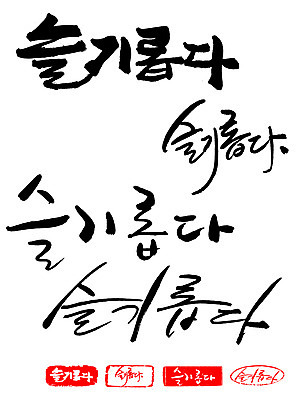 슬기롭다
슬기롭다
슬기롭다
슬기롭다
슬기롭다 슬기롭다 슬기롭다 슬기롭다